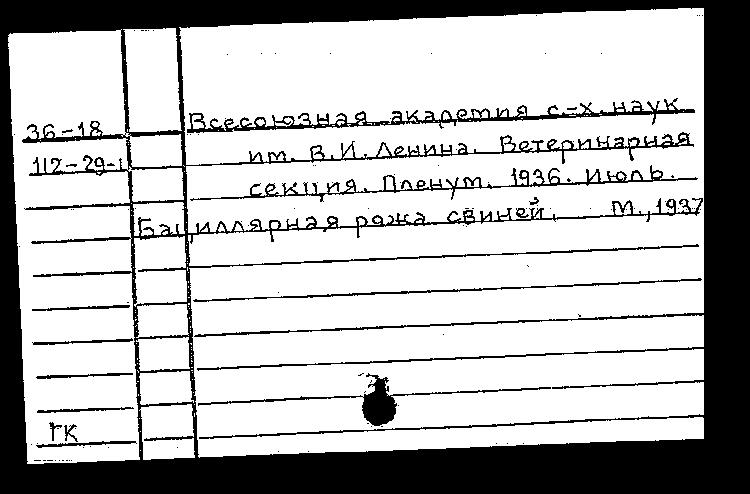 36-18 Всесоюзная академия с.-х. наук
112-29-1 им. В.И. Ленина. Ветеринарная
секция. Пленум. 1936. Июль.
Бациллярная рожа свиней. М., 1937
ГК